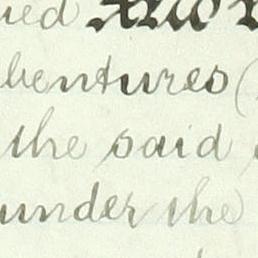 ued And
bentures (
the said
under the